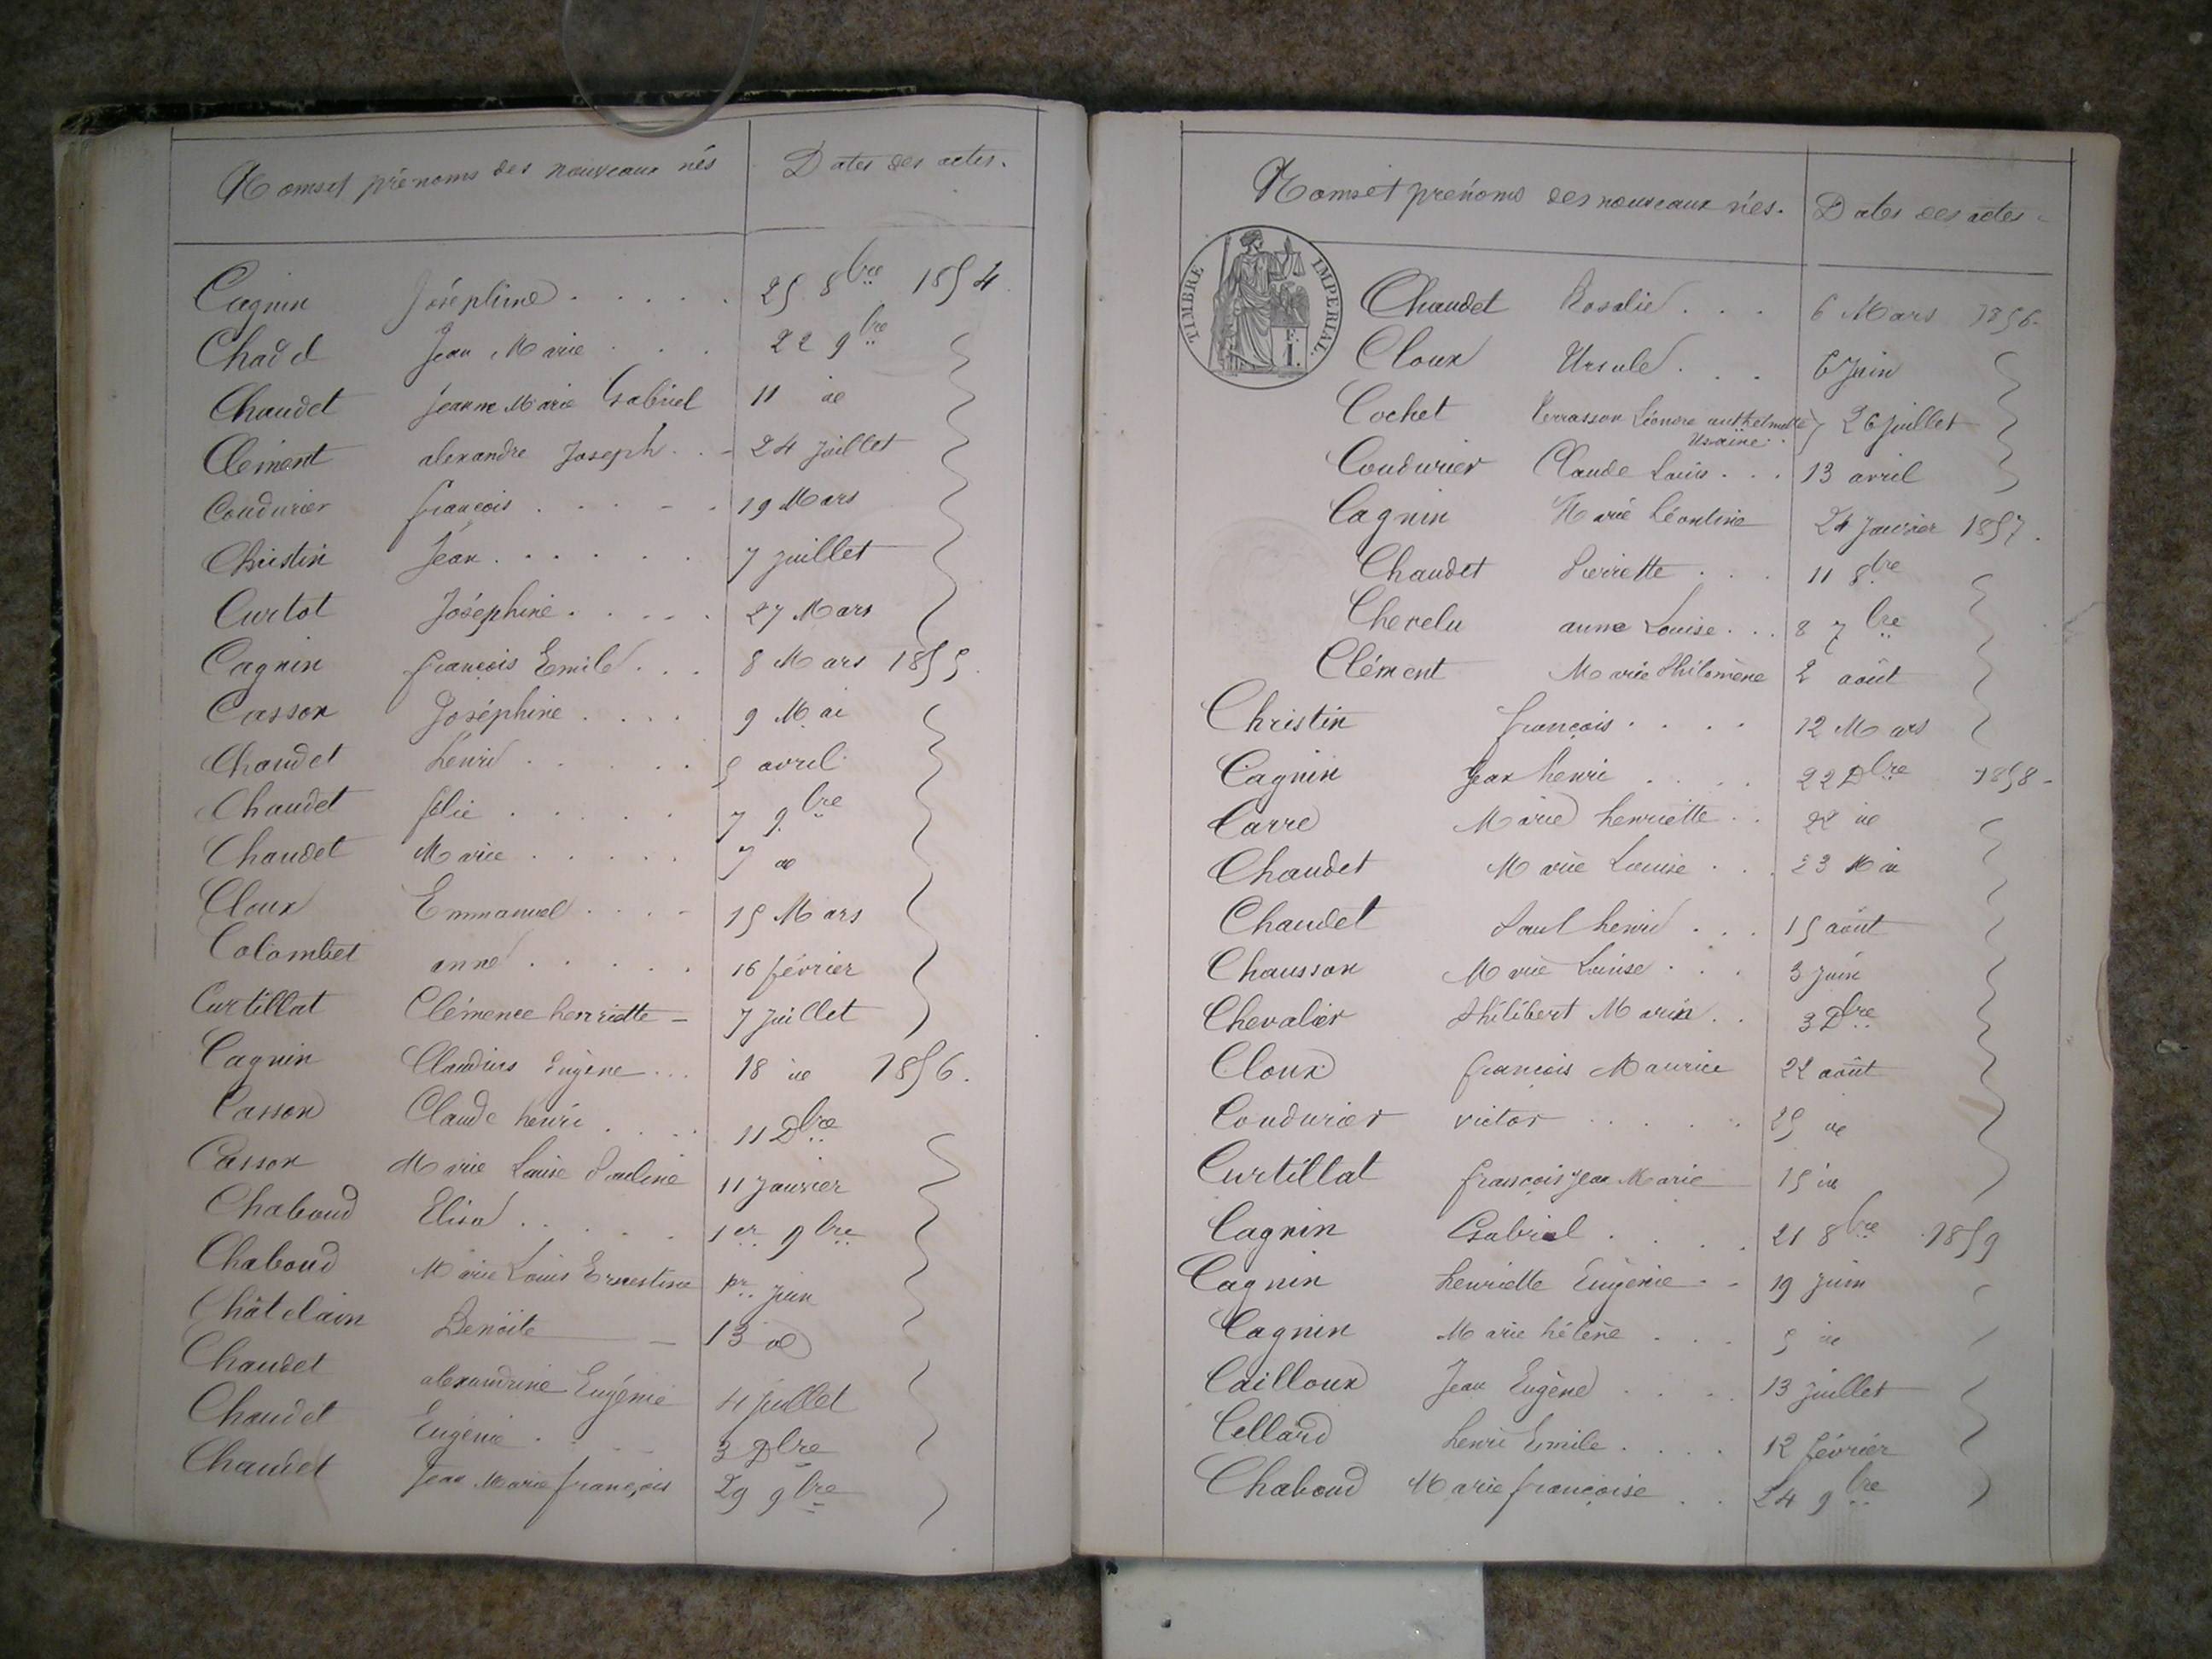 Noms et prénoms des nouveaux nés Dates des actes.
Cagnin Joséphine . . . . . 25 8bre 1854.
Chadel Jean Marie . . . 22 9bre
Chaudet Jeanne Marie Gabriel 11 id
Clément alexandre Joseph . . 24 juillet
Coudurier françois . . . . . 19 Mars
Christin Jean . . . . . . 7 juillet
Curtet Joséphine . . . . . 27 Mars
Cagnin françois Emile . . . 8 Mars 1855.
Casson Joséphine . . . . 9 Mai
Chaudet henri . . . . . 5 avril
Chaudet félie . . . . . 7 9bre
Chaudet Marie . . . . . 7 id
Cloux Emmanuel . . . . 15 Mars
Colombet anne . . . . . 16 février
Curtillat Clémence henriette - 7 juillet
Cagnin Claudius Eugène . . . 18 id 1856.
Casson Claude henri . . . . 11 Dbre
Casson Marie Louise Pauline 11 janvier
Chaboud Elisa . . . . . 1er 9bre
Chaboud Marie Louis Ernestine pr. juin
Châtelain Benoite - 13 id
Chaudet alexandrine Eugénie 4 juillet
Chaudet Eugénie . . . . 3 Dbre
Chaudet Jean Marie françois 29 9bre
Noms et prénoms des nouveaux nés. Dates des actes -
TIMBRE IMPERIAL.
F.
1.
Chaudet Rosalie . . . 6 Mars 1856.
Cloux Ursule . . . 6 Juin
Cochet Perrasson Léondre anthelmette 26 juillet
Coudurier Claude Louis . . . 13 avril
Cagnin Marie Léontine 24 Janvier 1857.
Chaudet Pierrette . . . 11 8bre
Cherelu anne Louise . . . 8 7bre
Clément Marie Philomène 2 août
Christin françois . . . . 12 Mars
Cagnin Jean henri . . . . 22 Dbre 1858 -
Carre Marie henriette . . 22 id
Chaudet Marie Louise . . . 23 Mai
Chaudet Paul henri . . . 15 août
Chausson Marie Louise . . . 3 juin
Chevalier Philibert Marin . . 3 Dbre
Cloux françois Maurice 22 août
Coudurier victor . . . . . 25 id
Curtillat françois Jean Marie 15 id
Cagnin Gabriel . . . . 21 8bre 1859
Cagnin henriette Eugénie . - 19 juin
Cagnin Marie hélène . . . 5 id
Cailloux Jean Eugène . . . . 13 juillet
Cellard henri Emile . . . . 12 février
Chaboud Marie françoise . . 24 9bre